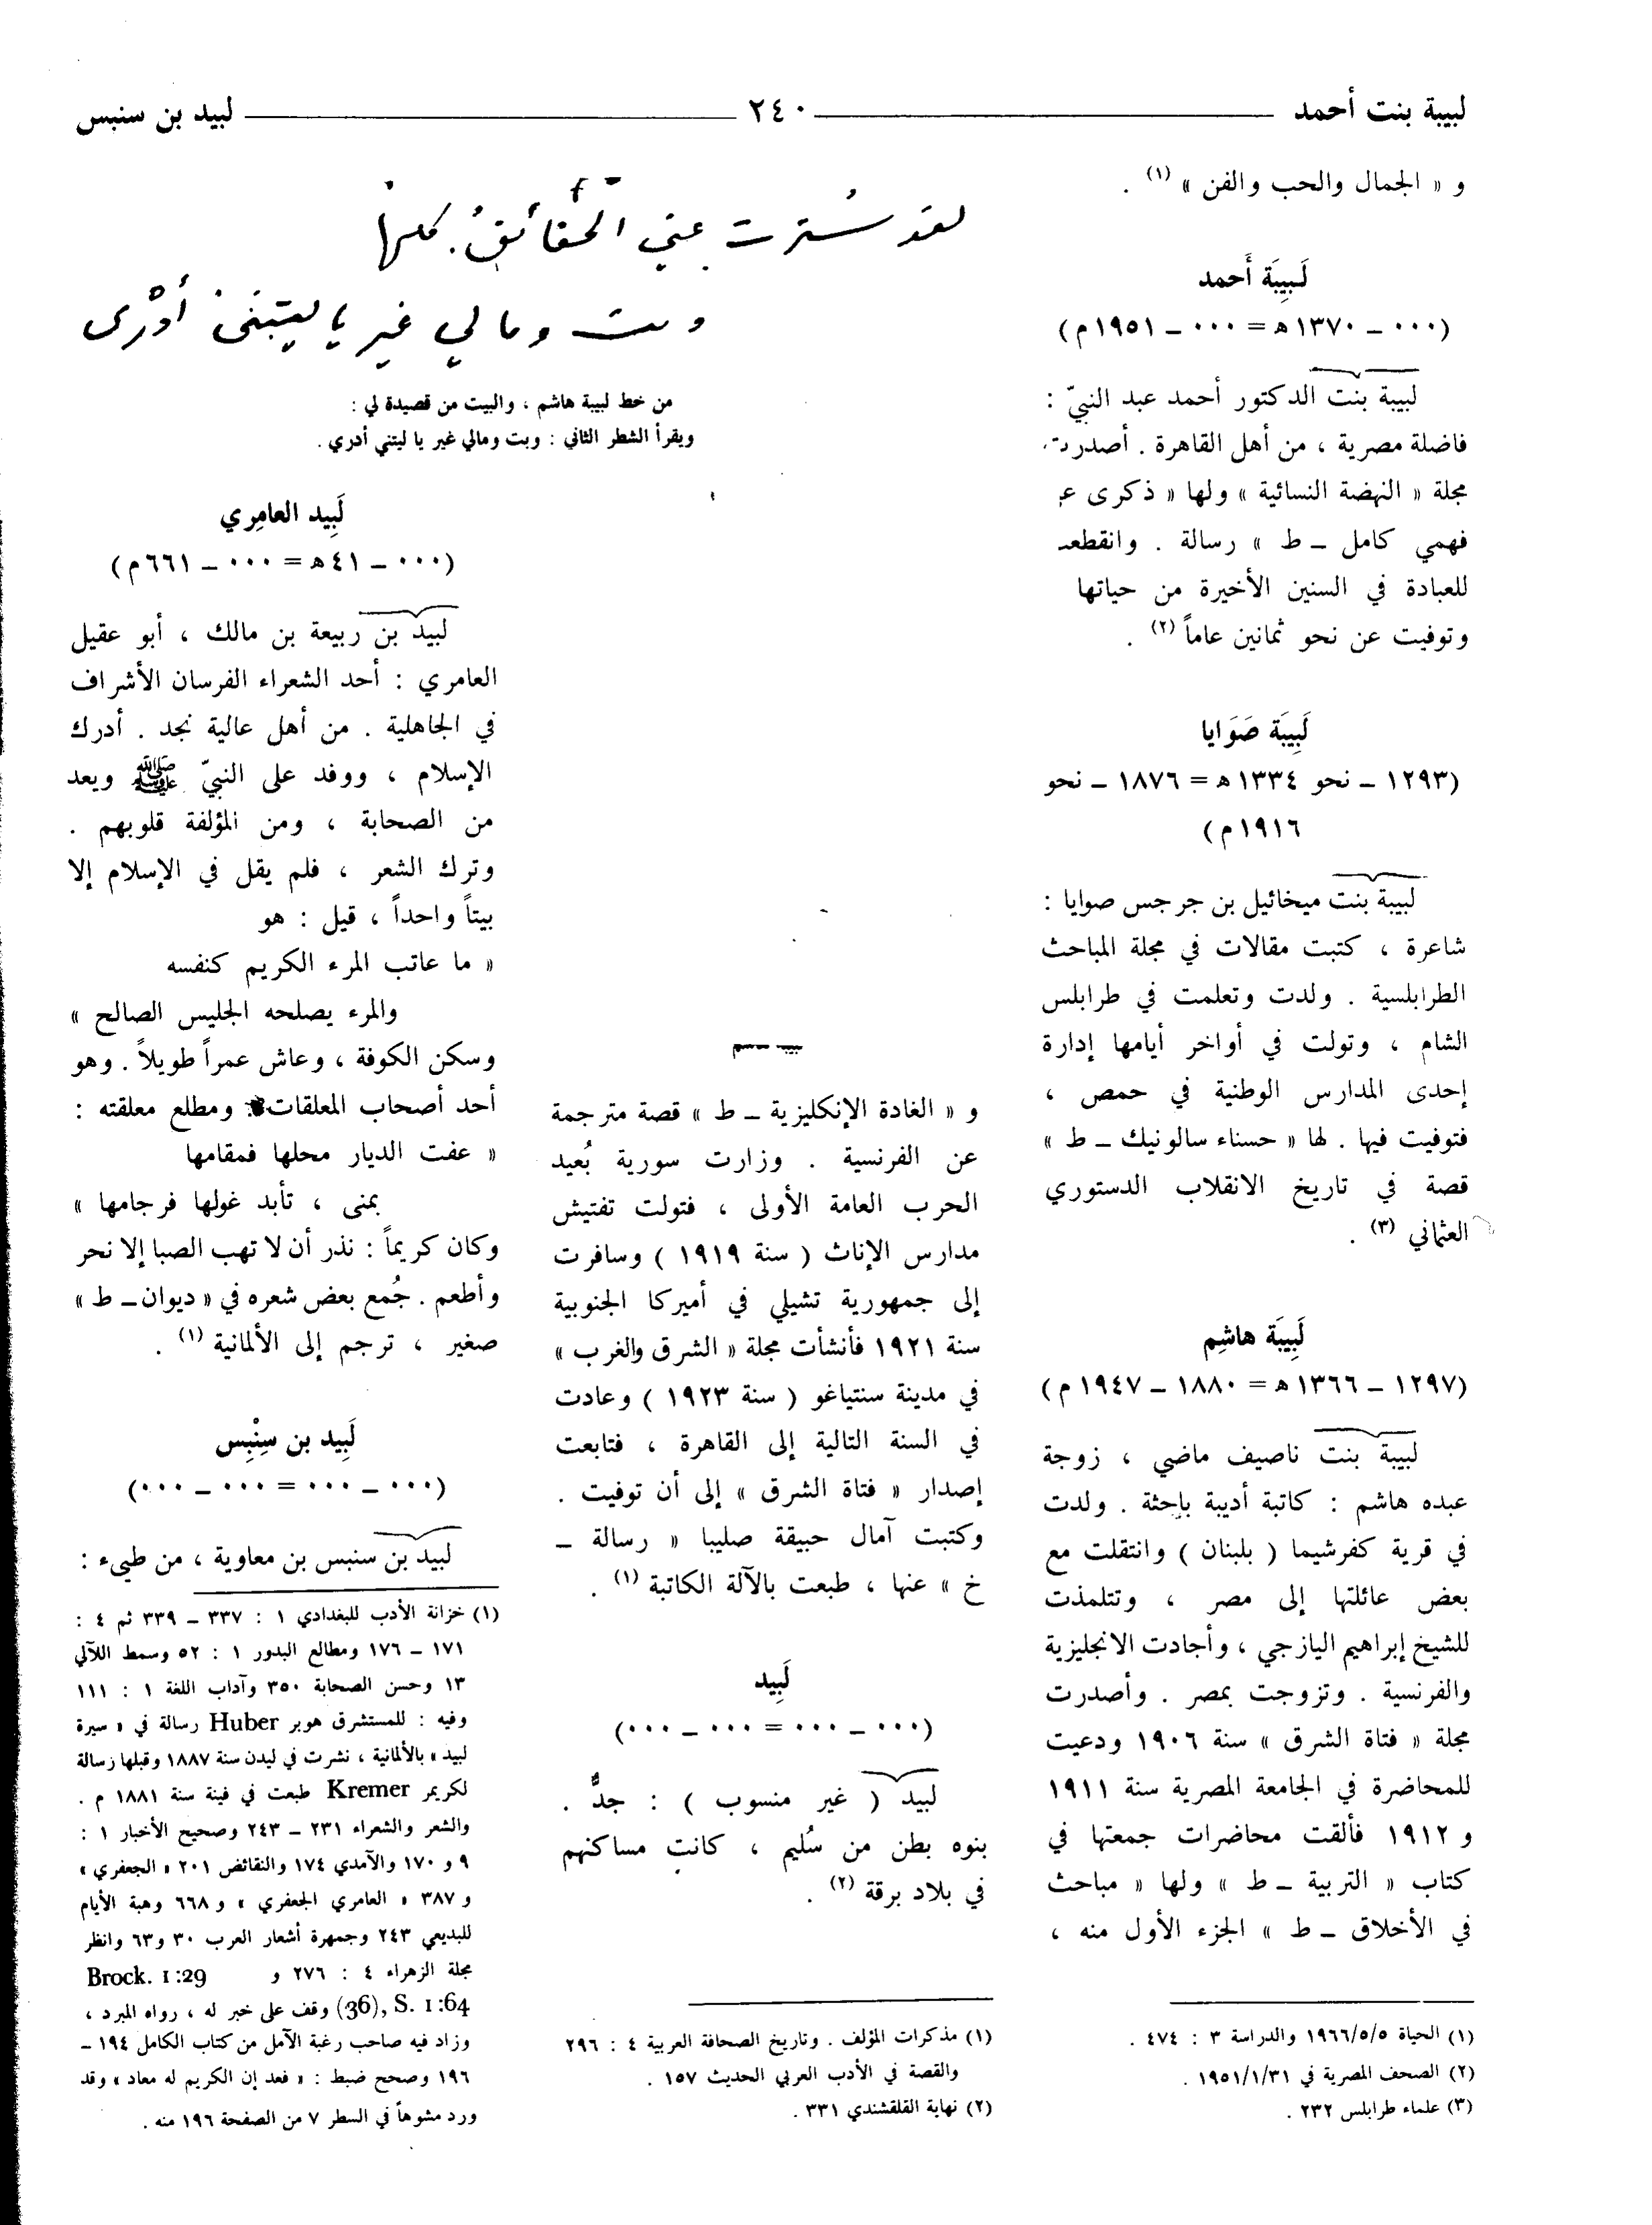 لبيبة بنت أحمد ٢٤٠ لبيد بن سنبس
و « الجمال والحب والفن » (١) .
لَبِيبَة أَحمد
(٠٠٠ – ١٣٧٠ هـ = ٠٠٠ – ١٩٥١ م)
لبيبة بنت الدكتور أحمد عبد النبيّ :
فاضلة مصرية ، من أهل القاهرة . أصدرت
مجلة « النهضة النسائية » ولها « ذكرى
فهمي كامل – ط » رسالة . وانقطعـ
للعبادة في السنين الأخيرة من حياتها
وتوفيت عن نحو ثمانين عاماً (٢) .
لَبِيبَة صَوَايا
(١٢٩٣ – نحو ١٣٣٤ هـ = ١٨٧٦ – نحو
١٩١٦ م)
لبيبة بنت ميخائيل بن جرجس صوايا :
شاعرة ، كتبت مقالات في مجلة المباحث
الطرابلسية . ولدت وتعلمت في طرابلس
الشام ، وتولت في أواخر أيامها إدارة
إحدى المدارس الوطنية في حمص ،
فتوفيت فيها . لها « حسناء سالونيك – ط »
قصة في تاريخ الانقلاب الدستوري
العثماني (٣) .
لَبِيبَة هاشِم
(١٢٩٧ – ١٣٦٦ هـ = ١٨٨٠ – ١٩٤٧ م)
لبيبة بنت ناصيف ماضي ، زوجة
عبده هاشم : كاتبة أديبة باحثة . ولدت
في قرية كفرشيما ( بلبنان ) وانتقلت مع
بعض عائلتها إلى مصر ، وتتلمذت
للشيخ إبراهيم اليازجي ، وأجادت الانجليزية
والفرنسية . وتزوجت بمصر . وأصدرت
مجلة « فتاة الشرق » سنة ١٩٠٦ ودعيت
للمحاضرة في الجامعة المصرية سنة ١٩١١
و ١٩١٢ فألقت محاضرات جمعتها في
كتاب « التربية – ط » ولها « مباحث
في الأخلاق – ط » الجزء الأول منه ،
(١) الحياة ١٩٦٦/٥/٥ والدراسة ٣ : ٤٧٤ .
(٢) الصحف المصرية في ١٩٥١/١/٣١ .
(٣) علماء طرابلس ٢٣٢ .
لقد سُترت عني الحقائقُ كلها
وبت ومالي غير يا ليتني أدْرى
من خط لبيبة هاشم ، والبيت من قصيدة لي :
ويقرأ الشطر الثاني : وبت ومالي غير يا ليتني أدري .
و « الغادة الإنكليزية – ط » قصة مترجمة
عن الفرنسية . وزارت سورية بُعيد
الحرب العامة الأولى ، فتولت تفتيش
مدارس الإناث ( سنة ١٩١٩ ) وسافرت
إلى جمهورية تشيلي في أميركا الجنوبية
سنة ١٩٢١ فأنشأت مجلة « الشرق والغرب »
في مدينة سنتياغو ( سنة ١٩٢٣ ) وعادت
في السنة التالية إلى القاهرة ، فتابعت
إصدار « فتاة الشرق » إلى أن توفيت .
وكتبت آمال حبيقة صليبا « رسالة –
خ » عنها ، طبعت بالآلة الكاتبة (١) .
لَبِيد
(٠٠٠ – ٠٠٠ = ٠٠٠ – ٠٠٠)
لبيد ( غير منسوب ) : جدٌّ .
بنوه بطن من سُليم ، كانت مساكنهم
في بلاد برقة (٢) .
(١) مذكرات المؤلف . وتاريخ الصحافة العربية ٤ : ٢٩٦
والقصة في الأدب العربي الحديث ١٥٧ .
(٢) نهاية القلقشندي ٣٣١ .
لَبِيد العامِري
(٠٠٠ – ٤١ هـ = ٠٠٠ – ٦٦١ م)
لبيد بن ربيعة بن مالك ، أبو عقيل
العامري : أحد الشعراء الفرسان الأشراف
في الجاهلية . من أهل عالية نجد . أدرك
الإسلام ، ووفد على النبيّ ﷺ ويعد
من الصحابة ، ومن المؤلفة قلوبهم .
وترك الشعر ، فلم يقل في الإسلام إلا
بيتاً واحداً ، قيل : هو
« ما عاتب المرء الكريم كنفسه
والمرء يصلحه الجليس الصالح »
وسكن الكوفة ، وعاش عمراً طويلاً . وهو
أحد أصحاب المعلقات . ومطلع معلقته :
« عفت الديار محلها فمقامها
بمنى ، تأبد غولها فرجامها »
وكان كريماً : نذر أن لا تهب الصبا إلا نحر
وأطعم . جُمع بعض شعره في « ديوان – ط »
صغير ، ترجم إلى الألمانية (١) .
لَبِيد بن سِنْبِس
(٠٠٠ – ٠٠٠ = ٠٠٠ – ٠٠٠)
لبيد بن سنبس بن معاوية ، من طيىء :
(١) خزانة الأدب للبغدادي ١ : ٣٣٧ – ٣٣٩ ثم ٤ :
١٧١ – ١٧٦ ومطالع البدور ١ : ٥٢ وسمط اللآلي
١٣ وحسن الصحابة ٣٥٠ وآداب اللغة ١ : ١١١
وفيه : للمستشرق هوبر Huber رسالة في « سيرة
لبيد » بالألمانية ، نشرت في ليدن سنة ١٨٨٧ وقبلها رسالة
لكريمر Kremer طبعت في فينة سنة ١٨٨١ م .
والشعر والشعراء ٢٣١ – ٢٤٣ وصحيح الأخبار ١ :
٩ و ١٧٠ والآمدي ١٧٤ والنقائض ٢٠١ « الجعفري »
و ٣٨٧ « العامري الجعفري » و ٦٦٨ وهبة الأيام
للبديعي ٢٤٣ وجمهرة أشعار العرب ٣٠ و٦٣ وانظر
مجلة الزهراء ٤ : ٢٧٦ و Brock. 1:29
(36), S. 1:64 وقف على خبر له ، رواه المبرد ،
وزاد فيه صاحب رغبة الآمل من كتاب الكامل ١٩٤ –
١٩٦ وصحح ضبط : « فعد إن الكريم له معاد » وقد
ورد مشوهاً في السطر ٧ من الصفحة ١٩٦ منه .